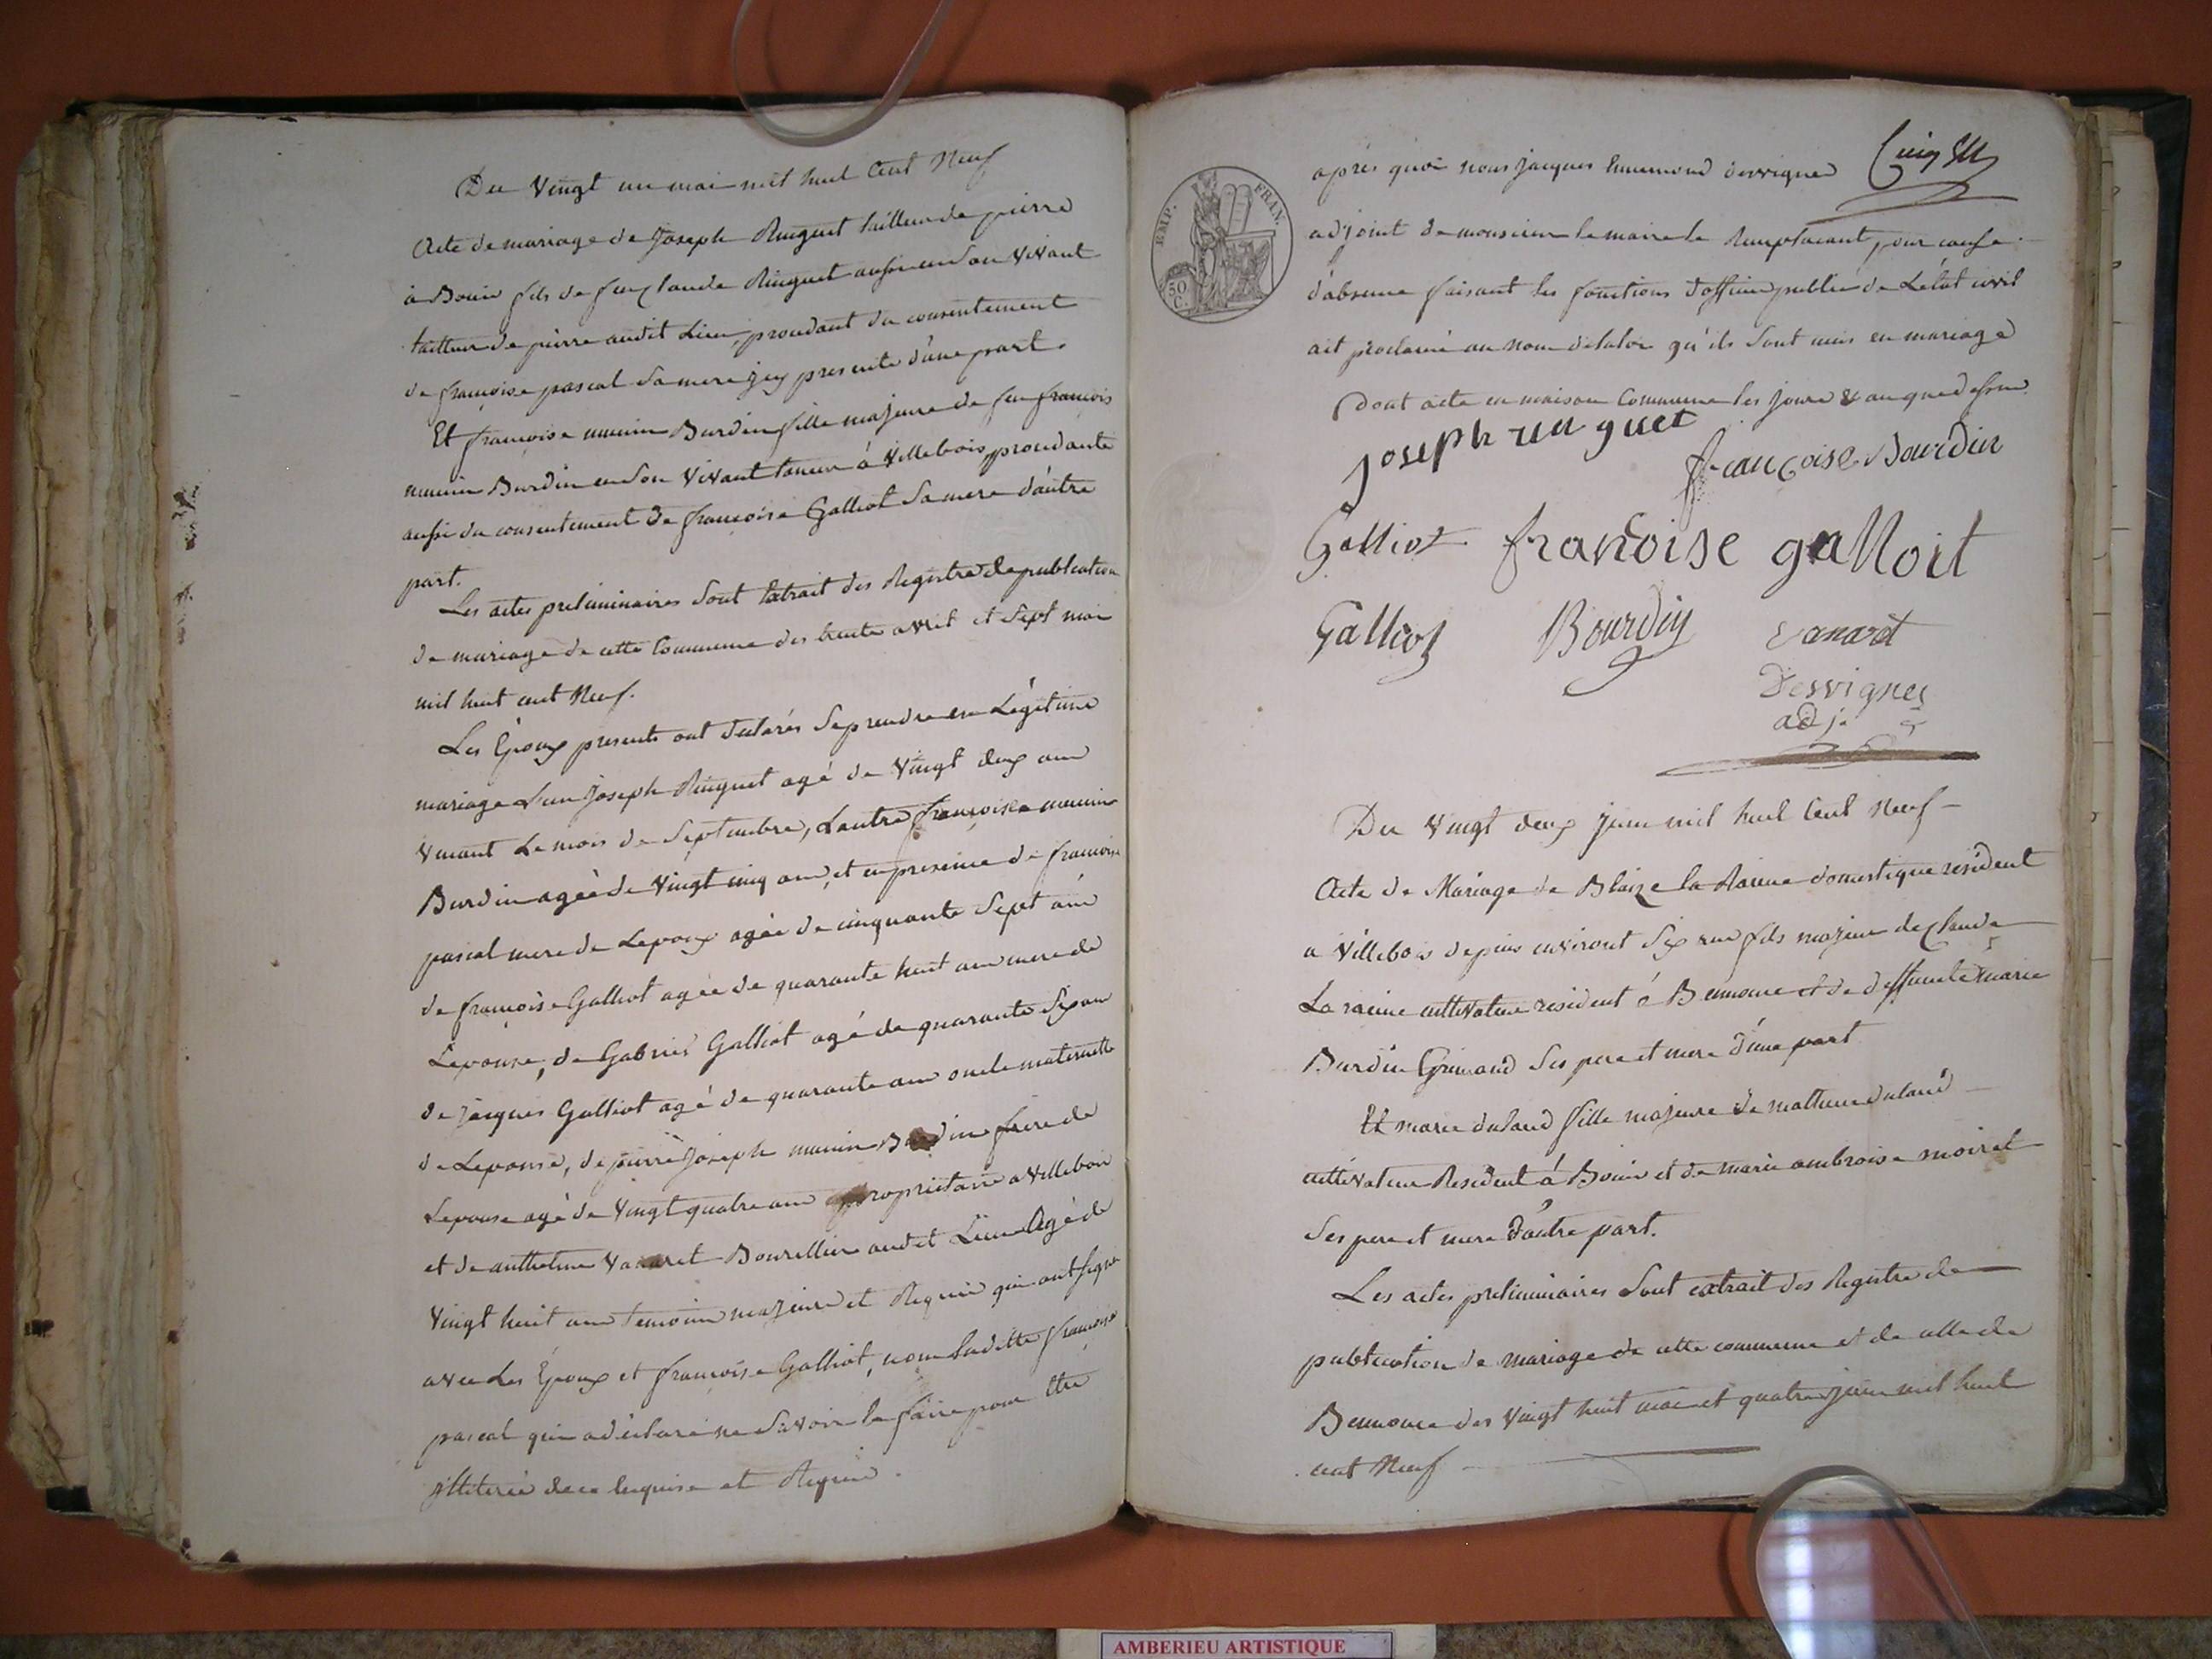 Du Vingt un mai mil huit Cent Neuf
Acte de mariage de Joseph Ringuet tailleur de pierre
à Bouis fils de feu Claude Ringuet aussi en son Vivant
tailleur de pierre audit Lieu, procedant du consentement
de françoise pascal sa mere icy presente d'une part.
Et françoise munin Burdin fille majeure de feu françois
munin Burdin en son Vivant taneur à Villebois, procedante
aussi du consentement de françoise Galliot sa mere d'autre
part.
Les actes preliminaires sont Extrait des Registre de publication
de mariage de cette Commune des trente avril et sept mai
mil huit cent Neuf.
Les Epoux presents ont declarés se prendre en Légitime
mariage L'un Joseph Ringuet agé de Vingt deux ans
Venant Le mois de Septembre, L'autre françoise munin
Burdin agée de Vingt cinq ans, et en presence de françoise
pascal mere de Lepoux agée de cinquante sept ans
de françoise Galliot agée de quarante huit ans mere de
Lepouse, de Gabriel Galliot agé de quarante six ans
de Jacques Galliot agé de quarante ans oncle maternelle
de Lepouse, de pierre Joseph munin Burdin frere de
Lepouse agé de Vingt quatre ans propriétaire a Villebois
et de anthelme Vanaret Bourellier audit Lieu Agé de
Vingt huit ans temoins majeurs et Requis qui ont signé
avec Les Epoux et françoise Galliot, non Laditte françoise
pascal qui a déclaré ne savoir le faire pour être
illiterée de ce enquise et Requise.
après quoi nous Jacques desvignes
adjoint de monsieur le maire le Remplacant, pour cause
d'absence faisant les fonctions d'officier public de L'état civil
ait proclamé au nom de la loi qu'ils sont unis en mariage
Dont acte en maison Commune les jour & an que dessus.
joseph ringuet
françoise Bourdin
Galliot francoise galloit
Galliot Bourdin Vanaret
Desvignes
adj.
EMP. FRAN.
50 C.
Du Vingt deux Juin mil huit Cent Neuf
Acte de Mariage de Blaize la Racine domestique résident
a Villebois depuis environt six ans fils majeur de Claude
La racine cultivateur resident à Benonce et de deffunte marie
Burdin Grimaud ses pere et mere d'une part
Et marie duland fille majeure de mathieu duland
cultivateur Resident à Bouis et de marie ambroise moiret
ses pere et mere d'autre part.
Les actes preliminaires sont extrait des Registre de
publication de mariage de cette commune et de celle de
Benonce des Vingt huit mai et quatre Juin mil huit
cent Neuf
AMBERIEU ARTISTIQUE